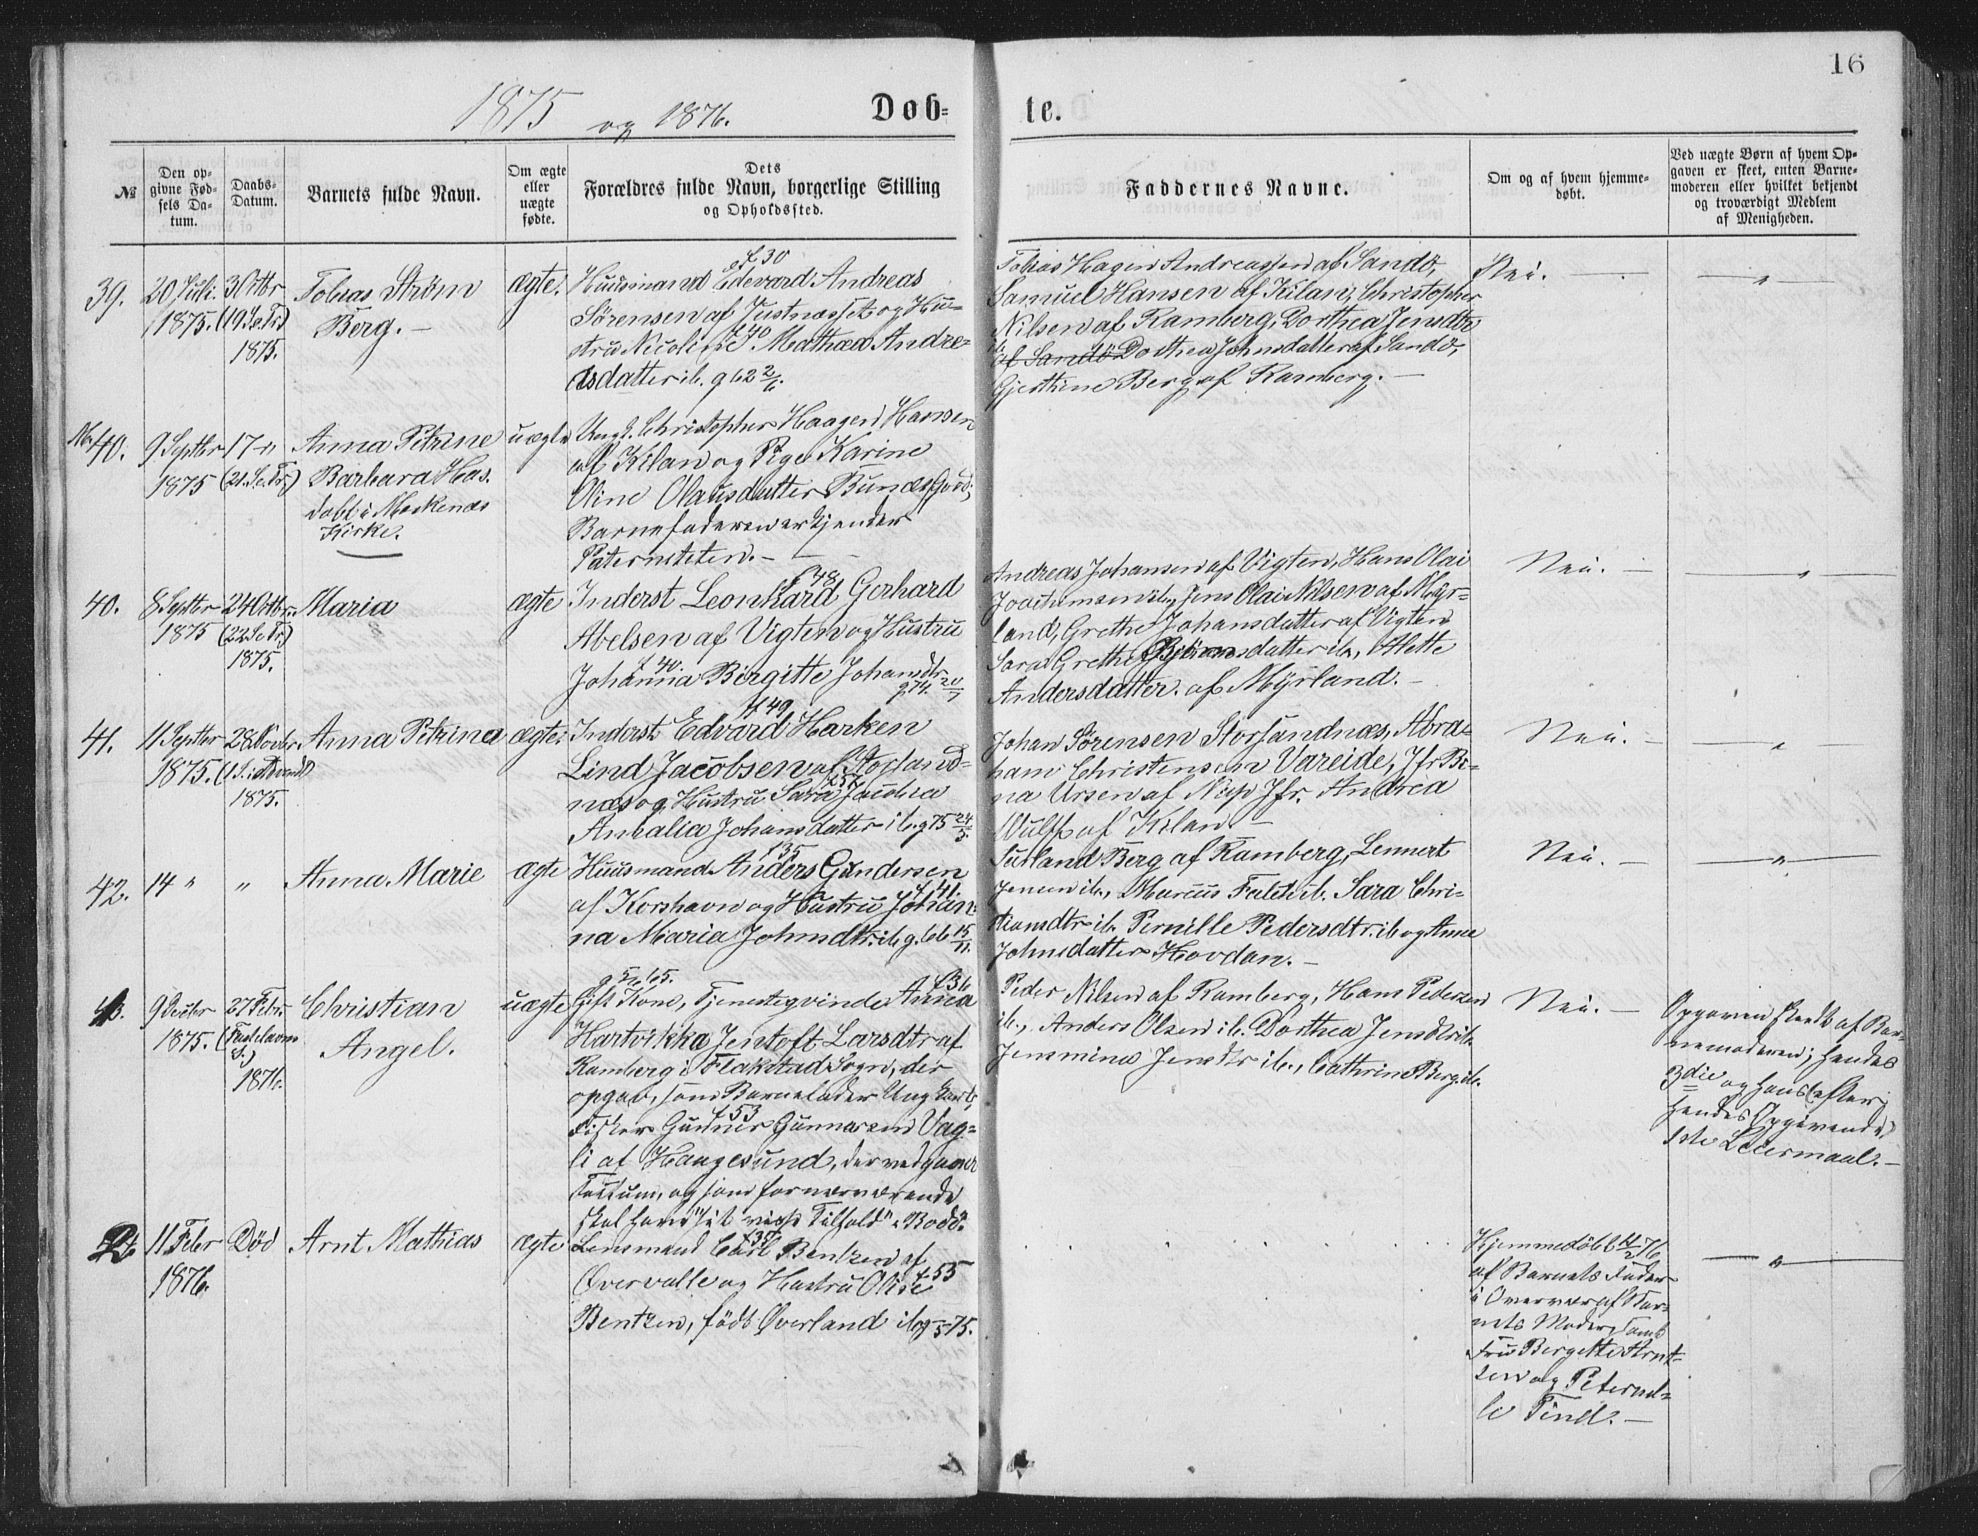 16
1875 og 1876.
Døb-
te.
№
Den op-
givne Fød-
sels Da-
tum.
Daabs-
Datum.
Barnets fulde Navn.
Om ægte
eller
uægte
fødte.
Dets
Forældres fulde Navn, borgerlige Stilling
og Opholdssted.
Faddernes Navne.
Om og af hvem hjemme-
døbt.
Ved uægte Børn af hvem Op-
gaven er skeet, enten Barne-
moderen eller hvilket bekjendt
og troværdigt Medlem
af Menigheden.
39.
20 Juli
1875.
3 Octbr
(19.S.e.Tr.)
1875.
Tobias Strøm
Berg. –
ægte.
f 30
Huusmand Edevard Andreas
Sørensen af Justnæs og Hu-
f 40
stru Nicoline Mathea Andre-
asdatter ib. g 62 2/6.
Tobias Hagen Andreassen af Sandø,
Samuel Hansen af Kilan, Christopher
Nilsen af Ramberg, Dorthea Jensdtr
ib. af Sandø Dorthea Johnsdatter af Sandø,
Gjertine Berg af Ramberg. –
Nei. –
"
No 40.
9 Septbr
1875
17 "
(21.S.e.Tr.)
Anna Petrine
Barbara Has.
døbt i Moskenæs
Kirke.
uægte
Ungk. Christopher Haagen Hansen
af Kilan og Pige Karine
Oline Olausdatter Bunæs Gaard;
Barnefaderen erkjender
Paterniteten. –
40.
8 Septbr
1875
24 Octbr.
(22 S.e.Tr.)
1875.
Maria
ægte
f 48
Inderst Leonhard Gerhard
Abelsen af Vigten og Hustru
f 40.
Johanna Birgitte Johansdtr
g 74 20/7
Andreas Johansen af Vigten, Hans Olai
Joachimsen ib., Jens Olai Nilsen af Myr-
land, Grethe Johansdatter af Vigten
Sara Grethe Bjørnsdatter ib., Alette
Andersdatter af Myrland. –
Nei. –
"
41.
11 Septbr
1875.
28 Novbr
(1 S. i Advendt)
1875.
Anna Petrina
ægte.
f 49
Inderst Edvard Harken
Lind Jacobsen af Storsand-
f 52
næs og Hustru Sara Jacobea
Amalia Johansdatter ib. g 75 24/5.
Johan Sørensen Storsandnæs, Abra-
ham Christensen Vareide, Jfr Bi-
na Ursen af Nap Jfr. Andrea
Wulff af Kilan –
Nei. –
"
42.
14 "
"
Anna Marie
ægte
f 35
Huusmand Anders Gundersen
f 41.
af Korshavn og Hustru Johan-
na Maria Johnsdtr. ib. g. 66 15/11.
Berg af Ramberg, Lennert
Jensen ib., Marcus Falch ib. Sara Chri-
stiansdtr ib. Pernille Pedersdtr. ib og Anne
Johnsdatter Hovdan. –
Nei. –
"
43.
9 Decbr
1875.
27 Febr
(Fastelavns
S.)
1876.
Christian
Angel.
uægte
g 5/6 65. f 36
Gift Kone, Tjenesteqvinde Anna
Hartvikka Jentoft Larsdtr af
Ramberg i Flakstad Sogn, der
opgav, som Barnefader Ungkarl,
f 53
Fisker Gunner Gunnersen Vag-
li af Haugesund, der vedgaaer
Factum, og som forværværende
skal have "sit visse Tilhold" i Bodø.
Peder Nilsen af Ramberg, Hans Pedersen
ib., Anders Olsen ib. Dorthea Jensdtr ib.
Jensmine Jensdtr ib., Cathrine Berg ib.
Nei. –
Opgaven skeedt af Bar-
nemoderen; hendes
3die og hans (efter
hendes Opgivende)
1ste Leiermaal. –
11 Febr
1876.
Død
Arnt Mathias
ægte
f 35
Lensmand Carl Bentzen af
f 55
Øvervalle og Hustru Olise
Bentzen, født Øverland ib. g 75.
Hjemmedøbt 11/2 76
af Barnets Fader
i Overvær af Bar-
nets Moder, samt
Fru Bergette Arnt-
sen og Peternel-
le Tind. –
"